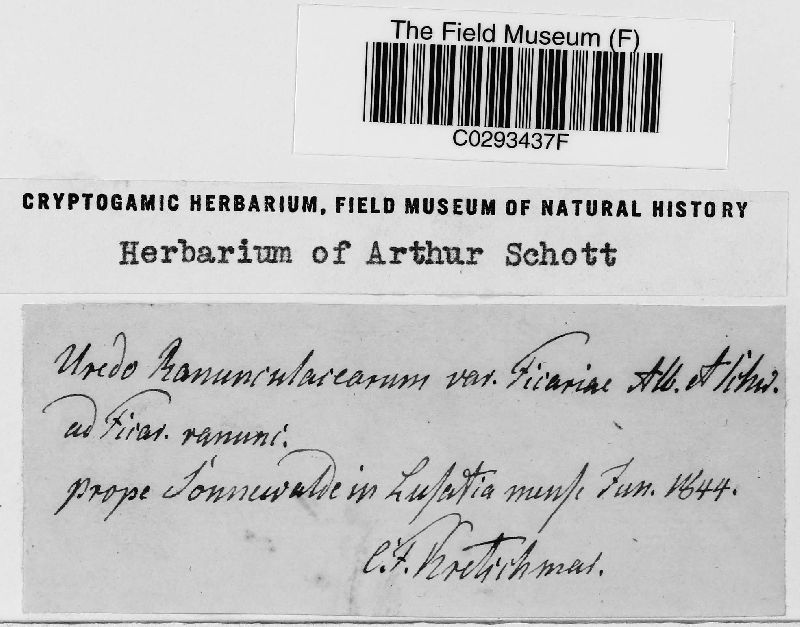 The Field Museum (F)
C0293437F
CRYPTOGAMIC HERBARIUM, FIELD MUSEUM OF NATURAL HISTORY
Herbarium of Arthur Schott
Uredo Ranunculacearum var. Ficariae Alb. et Schw.
ad Ficar. ranunc.
prope Sonnewalde in Lusatia mense Jun. 1844.
C. F. Kretschmar.